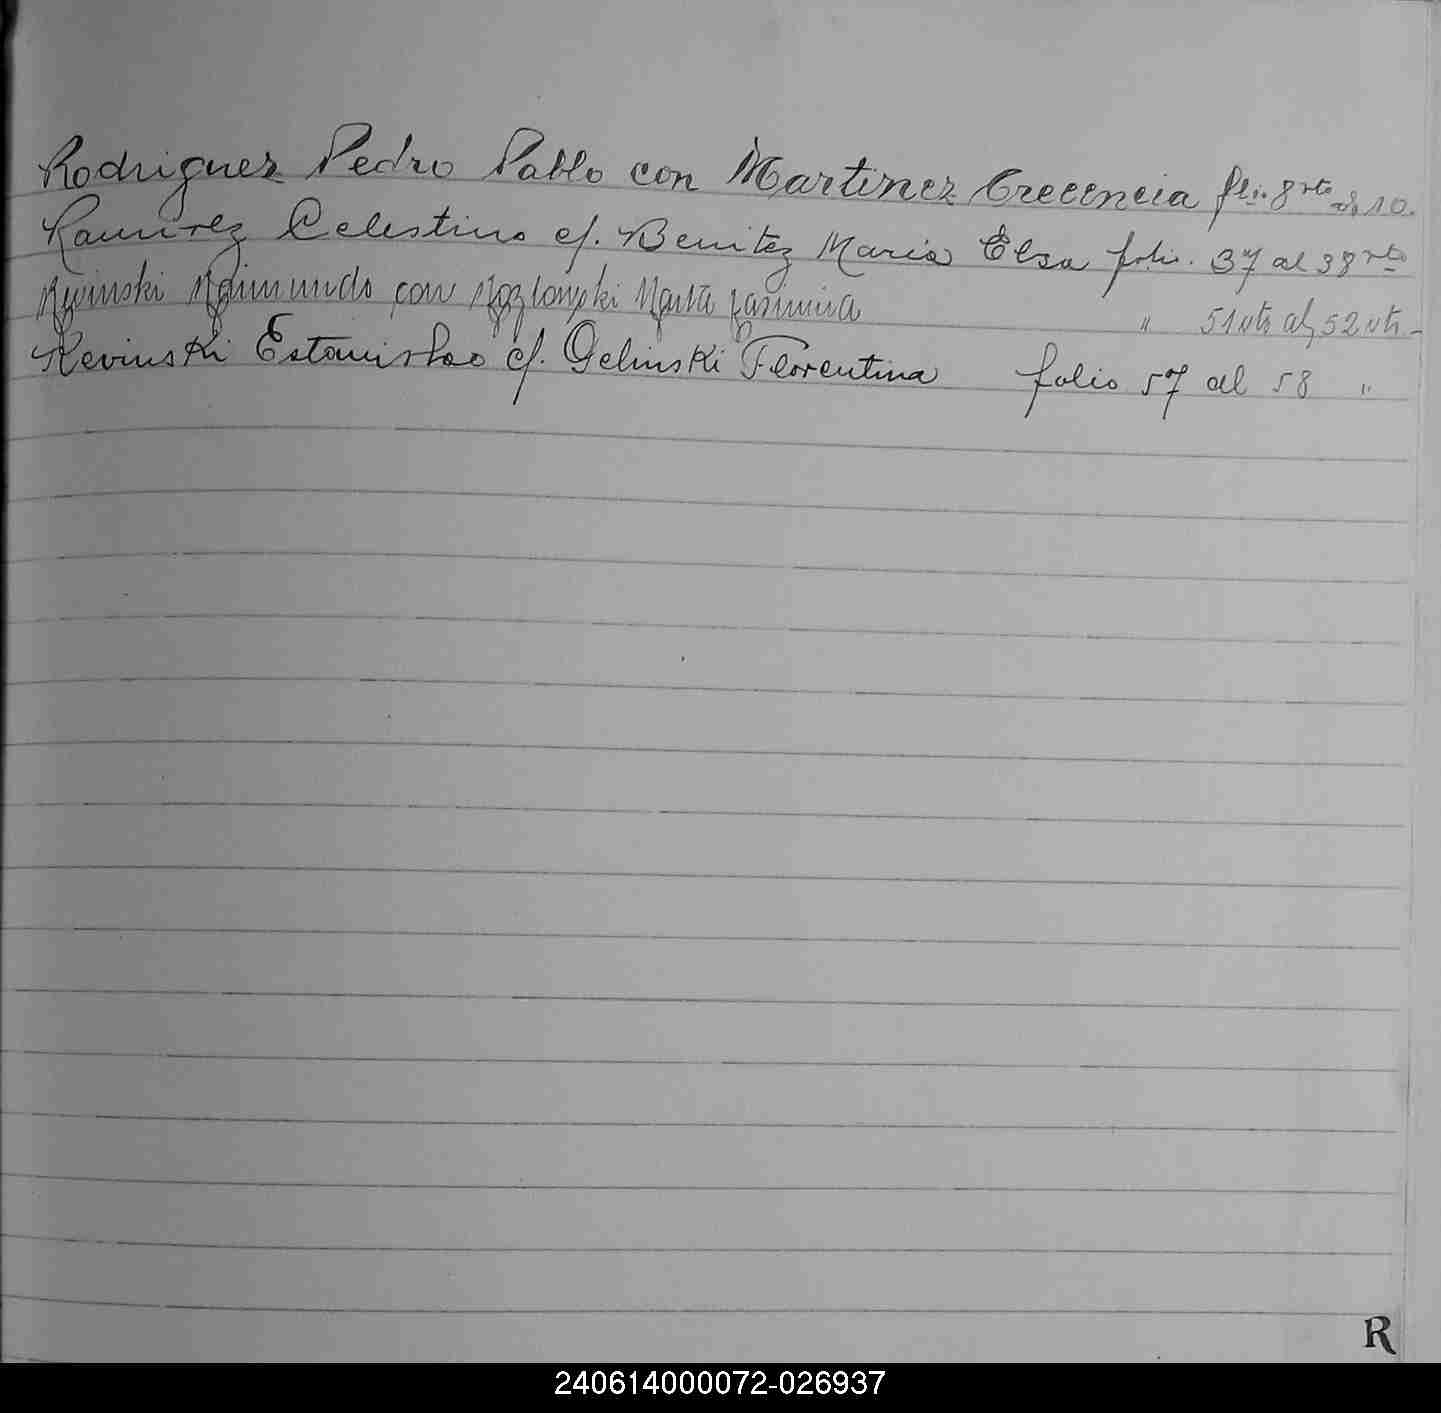 Rodriguez Pedro Pablo con Martinez Crecencia fli. 8 vto al 10.
Ramirez Celestino c/. Benitez Maria Elsa folio. 37 al 38 vto
Raimundo con Kozlowski Marta " 51 vto al 52 vto -
Kevinski Estanislao c/. Gelinski Florentina folio 57 al 58 "
R
240614000072-026937